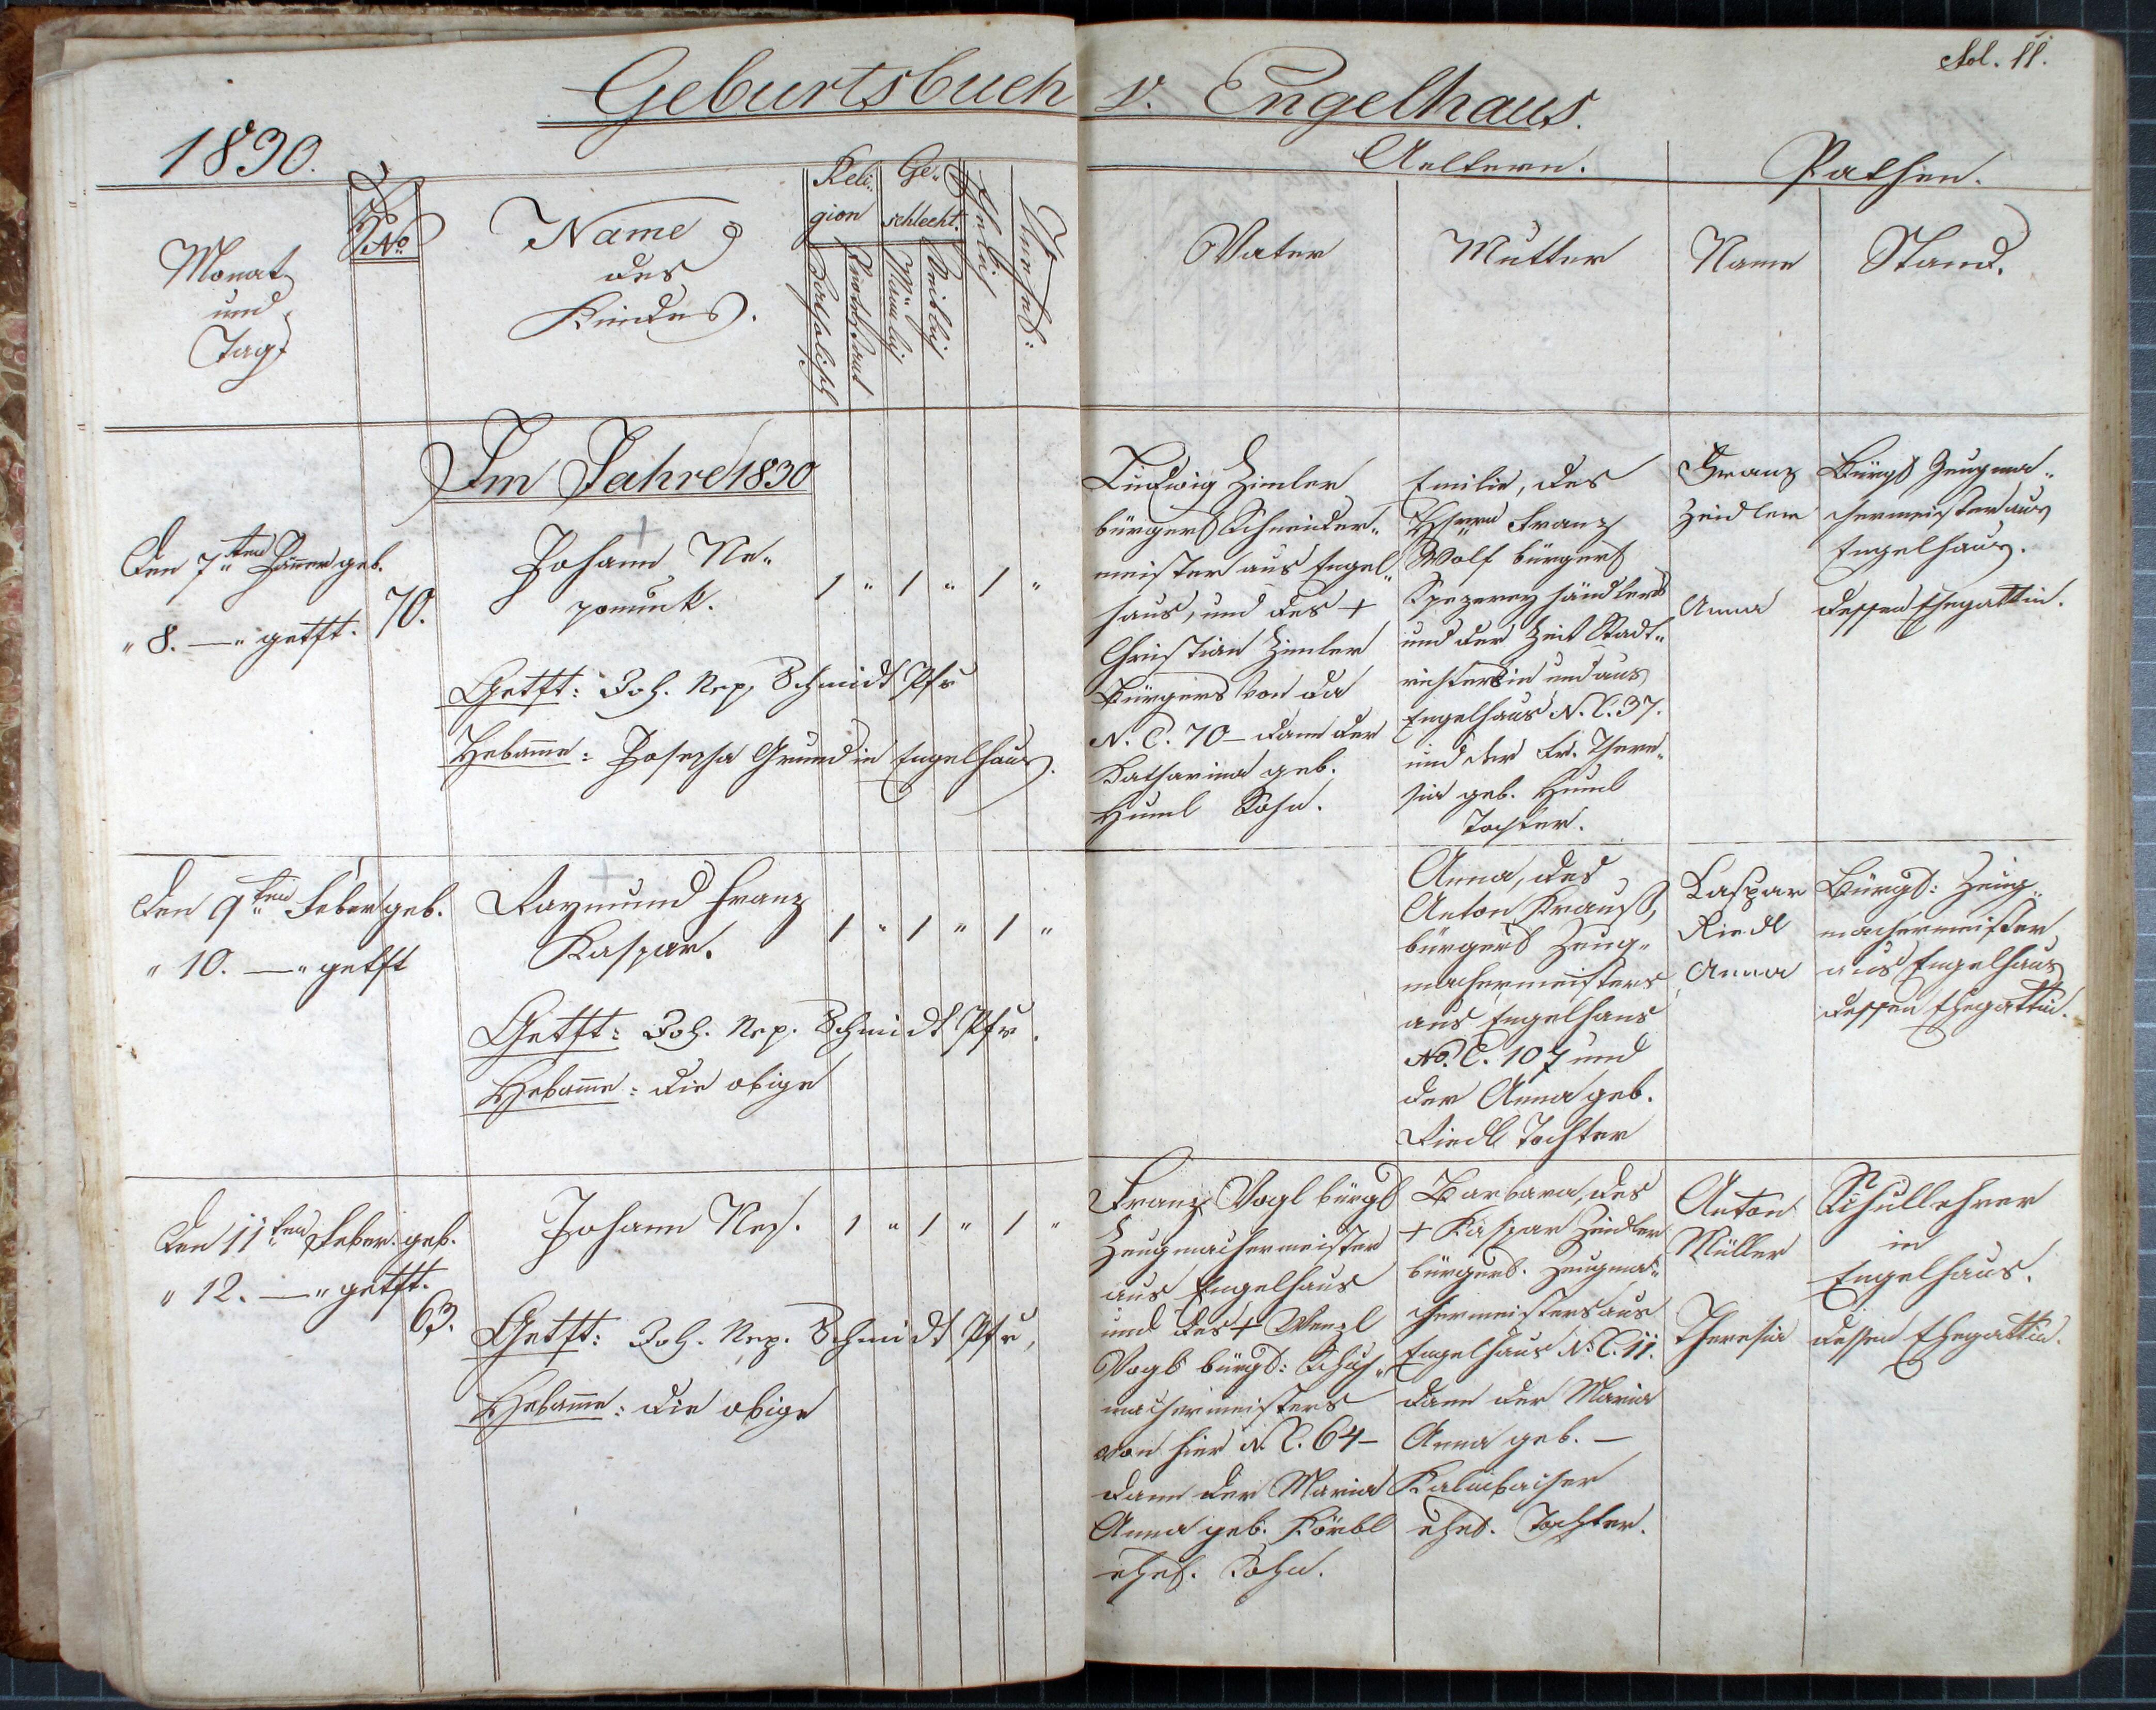 Fol. 11.
Geburtsbuch v. Engelhaus.
1830.
Monat
und
Tag
H
No
Name
des
Kindes.
Reli-
gion
Katholisch
Protestant
Ge-
schlecht.
Männlich
Weiblich
Ehelich
Unehel:
Aeltern.
Vater
Mutter
Pathen.
Name
Stand.
Im Jahre 1830
Den 7ten Jänner geb.
" 8. — " getft.
70.
Johann Ne-
pomuk.
1 " 1 " 1 "
Getft: Joh. Nep. Schmidt Pfr
Hebamme: Josepha Grund in Engelhaus.
Ludwig Zimler
bürgerl Schneider-
meister aus Engel-
haus, und des +
Christian Zimler
Bürgers von da
N. C. 70 – dann der
Katharina geb.
Huml Sohn.
Emilie, des
Herrn Franz
Wolf bürgerl
Spezereyhändlers
und der Zeit Stadt-
richters in und aus
Engelhaus N. C. 37.
und der Fr. There-
sia geb. Huml
Tochter.
Franz
Zeidler
Anna
Bürgl Zeugma-
chermeister aus
Engelhaus.
dessen Ehegattin.
Den 9ten Feber geb.
" 10. — " getft
Raymund Franz
Kaspar.
1 " 1 " 1 "
Getft: Joh. Nep. Schmidt Pfr.
Hebamme: die obige
Anna, des
Anton Krauß,
bürgerl Zeug-
machermeisters
aus Engelhaus
No. C. 107 und
der Anna geb.
Riedl Tochter
Kaspar
Riedl
Anna
Bürgl: Zeug-
machermeister
aus Engelhaus
dessen Ehegattin.
Den 11ten Feber. geb.
" 12. — " getft.
63.
Johann Nep.
1 " 1 " 1 "
Getft: Joh. Nep. Schmidt Pfr,
Hebamme: die obige
Franz Vogl bürgl
Zeugmachermeister
aus Engelhaus
und des + Wenzl
Vogl bürgl: Schuh-
machermeisters
von hier N. C. 64 –
dann der Maria
Anna geb. Körbl
ehel. Sohn.
Barbara, des
+ Kaspar Zeidler
bürgerl. Zeugma-
chermeisters aus
Engelhaus N. C. 11.
dann der Maria
Anna geb. –
ehel. Tochter.
Anton
Müller
Theresia
Schullehrer
in
Engelhaus.
dessen Ehegattin.